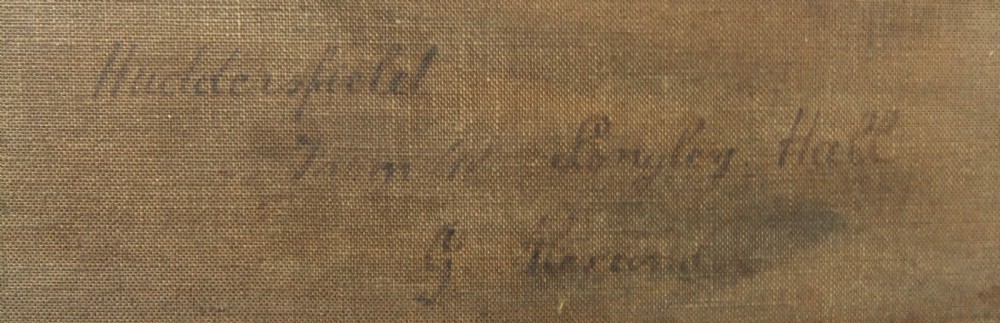 Huddersfield
From Longley Hall
G